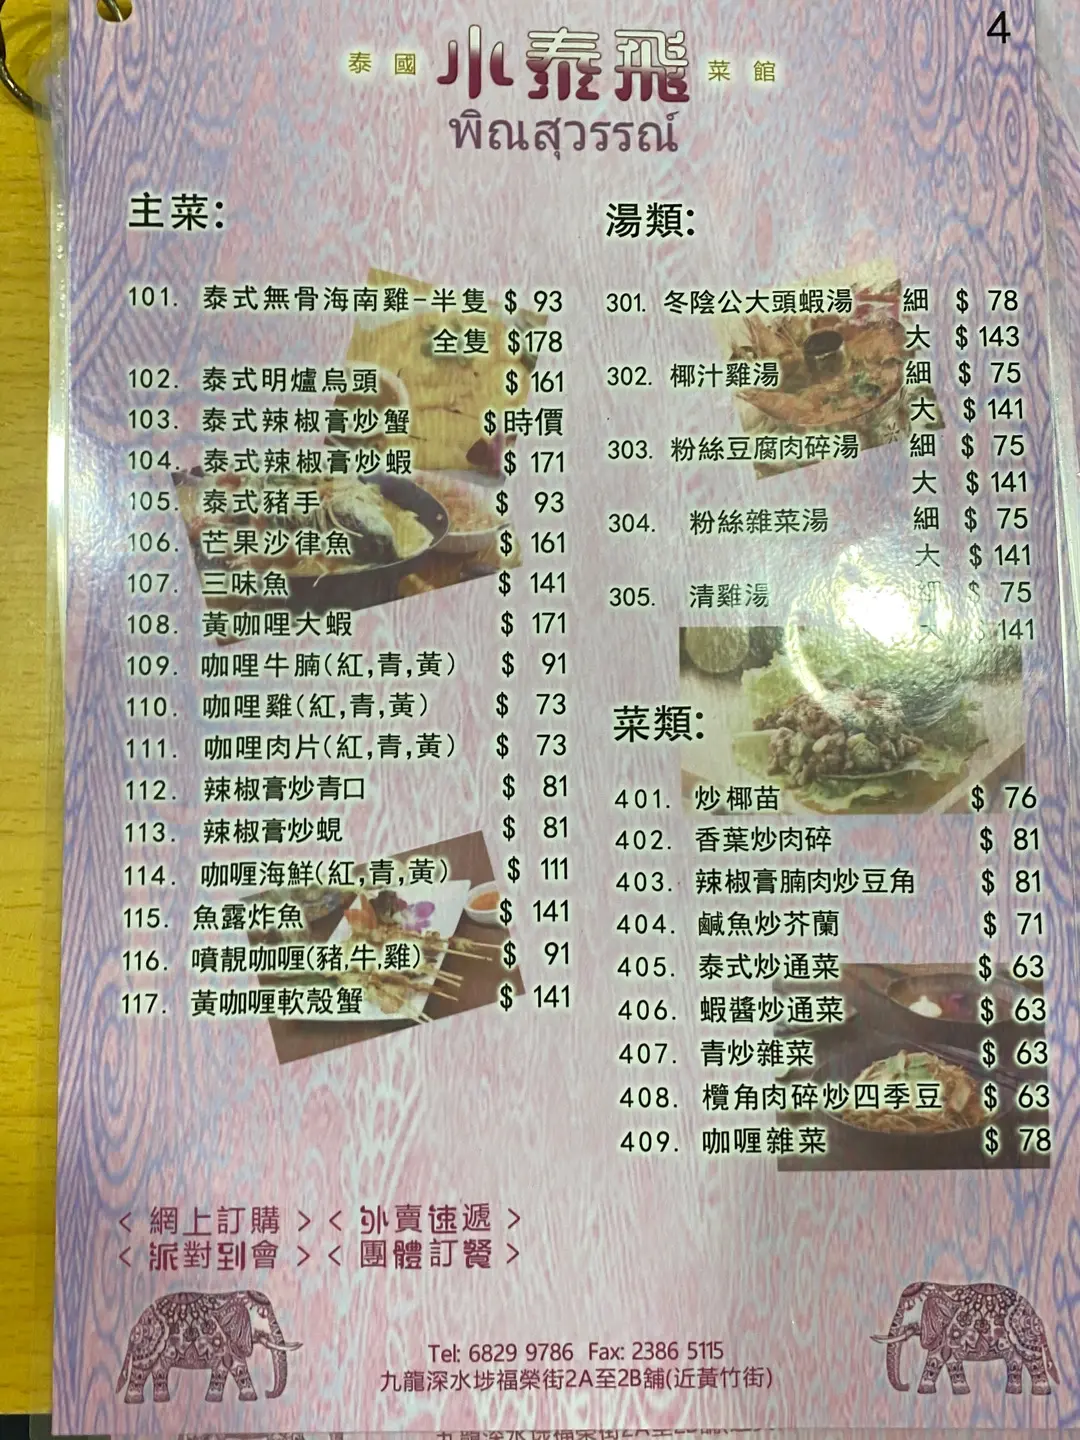 4
泰國 小泰飛 菜館
พิณสุวรรณ์
主菜:
101. 泰式無骨海南雞-半隻 $ 93
全隻 $178
102. 泰式明爐烏頭 $ 161
103. 泰式辣椒膏炒蟹 $時價
104. 泰式辣椒膏炒蝦 $ 171
105. 泰式豬手 $ 93
106. 芒果沙律魚 $ 161
107. 三味魚 $ 141
108. 黃咖哩大蝦 $ 171
109. 咖哩牛腩(紅,青,黃) $ 91
110. 咖哩雞(紅,青,黃) $ 73
111. 咖哩肉片(紅,青,黃) $ 73
112. 辣椒膏炒青口 $ 81
113. 辣椒膏炒蜆 $ 81
114. 咖喱海鮮(紅,青,黃) $ 111
115. 魚露炸魚 $ 141
116. 噴靚咖喱(豬,牛,雞) $ 91
117. 黃咖喱軟殼蟹 $ 141
湯類:
301. 冬陰公大頭蝦湯 細 $ 78
大 $ 143
302. 椰汁雞湯 細 $ 75
大 $ 141
303. 粉絲豆腐肉碎湯 細 $ 75
大 $ 141
304. 粉絲雜菜湯 細 $ 75
大 $ 141
305. 清雞湯 細 $ 75
大 $ 141
菜類:
401. 炒椰苗 $ 76
402. 香葉炒肉碎 $ 81
403. 辣椒膏腩肉炒豆角 $ 81
404. 鹹魚炒芥蘭 $ 71
405. 泰式炒通菜 $ 63
406. 蝦醬炒通菜 $ 63
407. 青炒雜菜 $ 63
408. 欖角肉碎炒四季豆 $ 63
409. 咖喱雜菜 $ 78
< 網上訂購 > < 外賣速遞 >
< 派對到會 > < 團體訂餐 >
Tel: 6829 9786 Fax: 2386 5115
九龍深水埗福榮街2A至2B舖(近黃竹街)